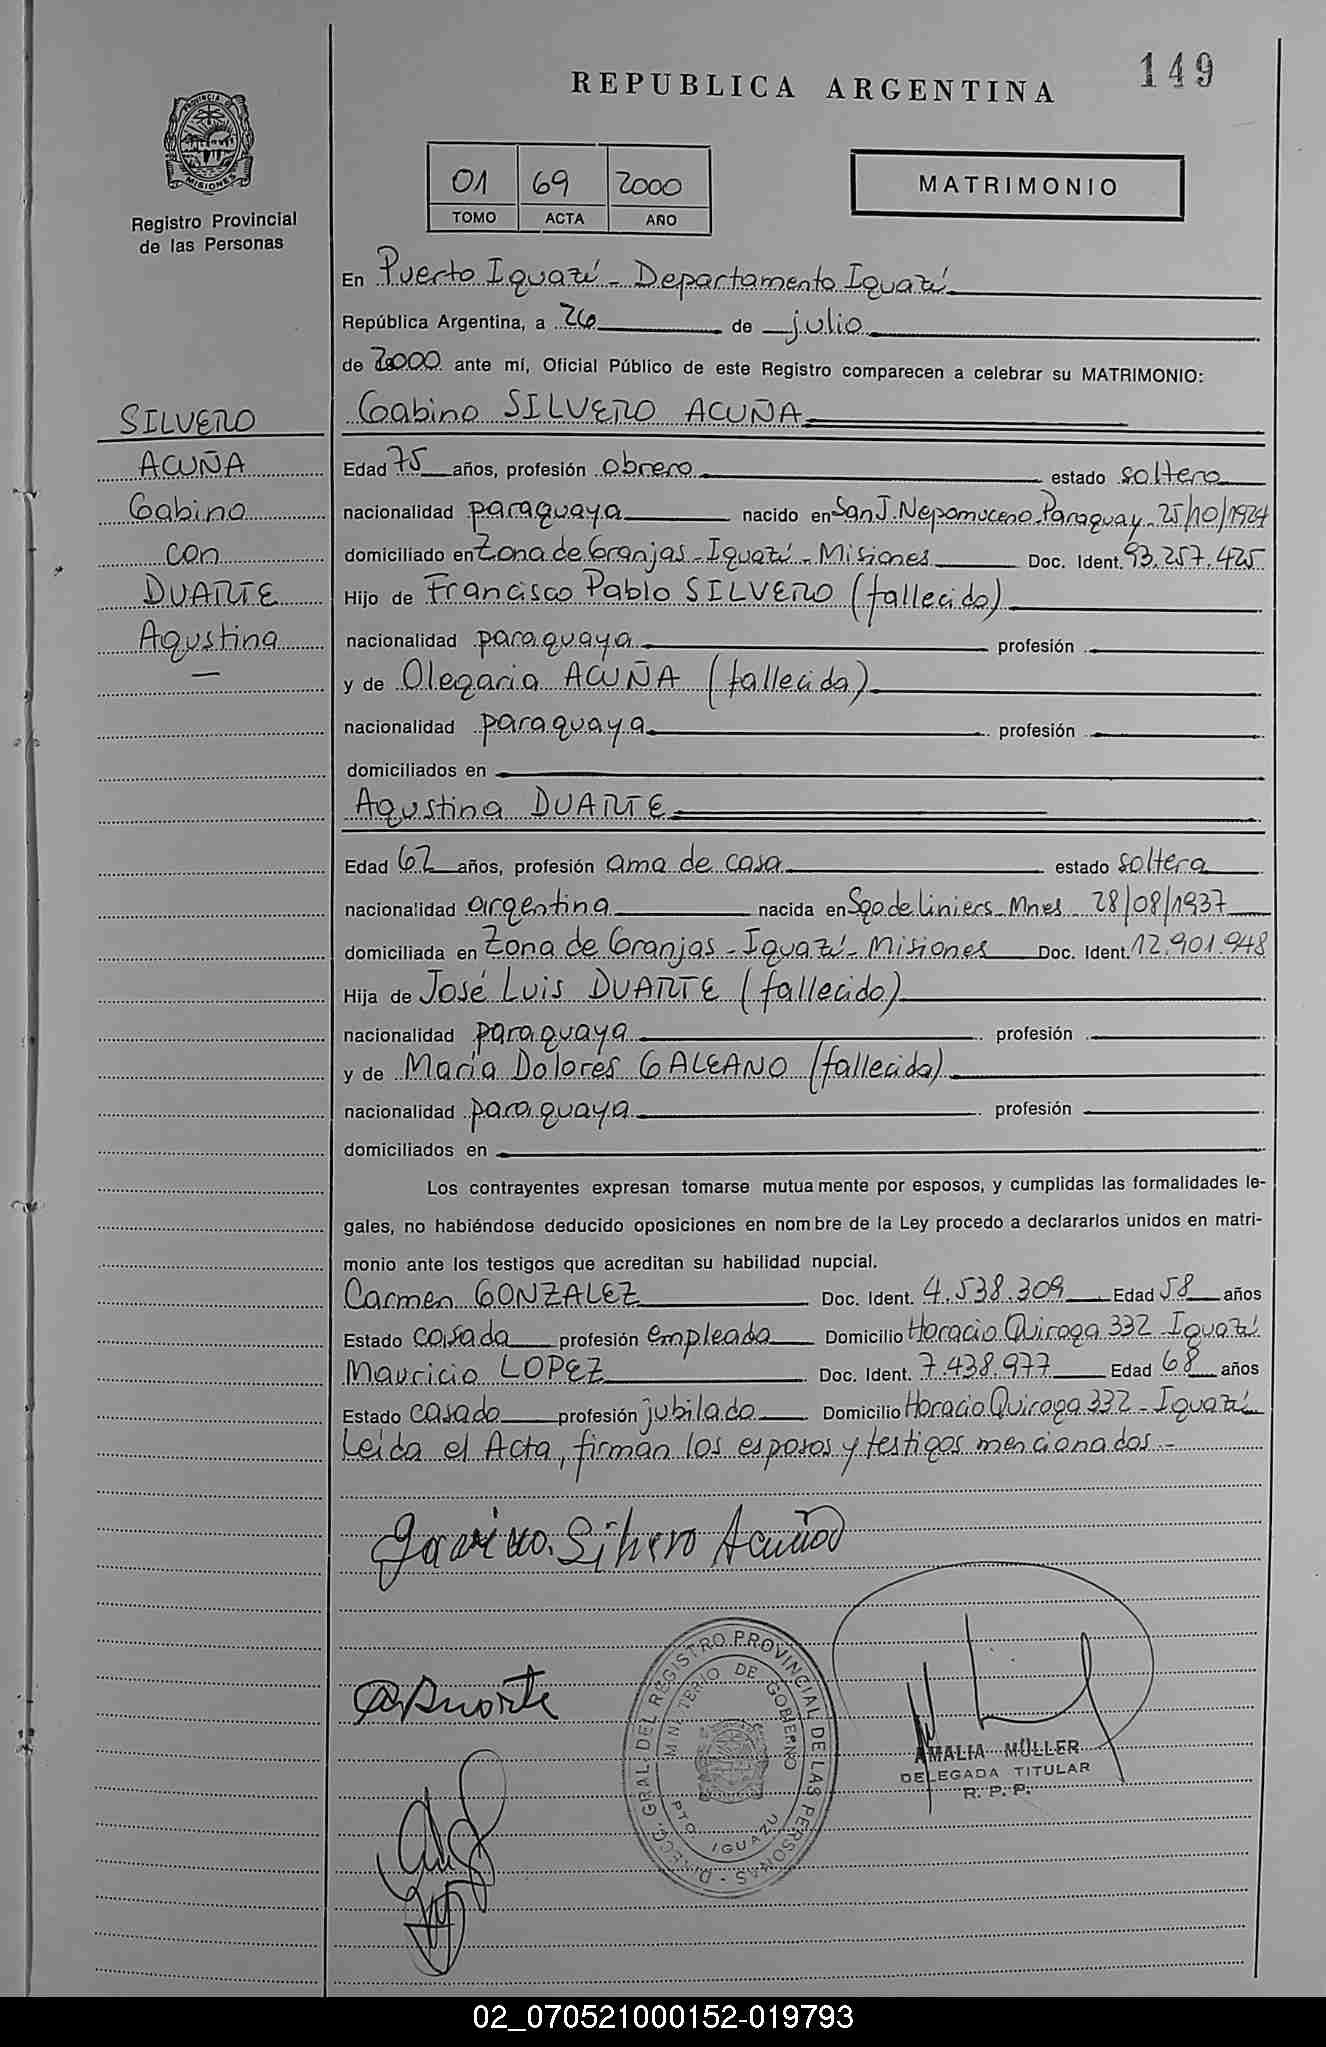 149
REPUBLICA ARGENTINA
PROVINCIA DE
MISIONES
Registro Provincial
de las Personas
01 69 2000
TOMO ACTA AÑO
MATRIMONIO
En Puerto Iguazú - Departamento Iguazú
República Argentina, a 26 de julio
de 2000 ante mí, Oficial Público de este Registro comparecen a celebrar su MATRIMONIO:
SILVERO
ACUÑA
Gabino
con
DUARTE
Agustina
Gabino SILVERO ACUÑA
Edad 75 años, profesión obrero estado soltero
nacionalidad paraguaya nacido en San J. Nepomuceno. Paraguay - 25/10/1924
domiciliado en Zona de Granjas - Iguazú - Misiones Doc. Ident. 93.257.425
Hijo de Francisco Pablo SILVERO (fallecido)
nacionalidad paraguaya profesión
y de Olegaria ACUÑA (fallecida)
nacionalidad paraguaya profesión
domiciliados en
Agustina DUARTE
Edad 62 años, profesión ama de casa estado soltera
nacionalidad argentina nacida en Sgo de Liniers - Mnes - 28/08/1937
domiciliada en Zona de Granjas - Iguazú - Misiones Doc. Ident. 12.901.948
Hija de José Luis DUARTE (fallecido)
nacionalidad paraguaya profesión
y de María Dolores GALEANO (fallecida)
nacionalidad paraguaya profesión
domiciliados en
Los contrayentes expresan tomarse mutuamente por esposos, y cumplidas las formalidades le-
gales, no habiéndose deducido oposiciones en nombre de la Ley procedo a declararlos unidos en matri-
monio ante los testigos que acreditan su habilidad nupcial.
Carmen GONZALEZ Doc. Ident. 4.538.309 Edad 58 años
Estado casada profesión empleada Domicilio Horacio Quiroga 332 - Iguazú
Mauricio LOPEZ Doc. Ident. 7.438.977 Edad 68 años
Estado casado profesión jubilado Domicilio Horacio Quiroga 332 - Iguazú
Leída el Acta, firman los esposos y testigos mencionados.-
Silvero Acuña
Duarte
DIRECC. GRAL. DEL REGISTRO PROVINCIAL DE LAS PERSONAS
MINISTERIO DE GOBIERNO
PTO IGUAZU
AMALIA MÜLLER
DELEGADA TITULAR
R. P. P.
02_070521000152-019793